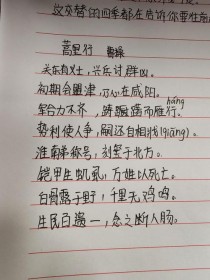 这交替的四季都在告诉你要性
蒿里行 曹操
关东有义士，兴兵讨群凶。
初期会盟津，乃心在咸阳。
军合力不齐，踌躇而雁行(háng)。
势利使人争，嗣还自相戕(qiāng)。
淮南弟称号，刻玺于北方。
铠甲生虮虱，万姓以死亡。
白骨露于野，千里无鸡鸣。
生民百遗一，念之断人肠。